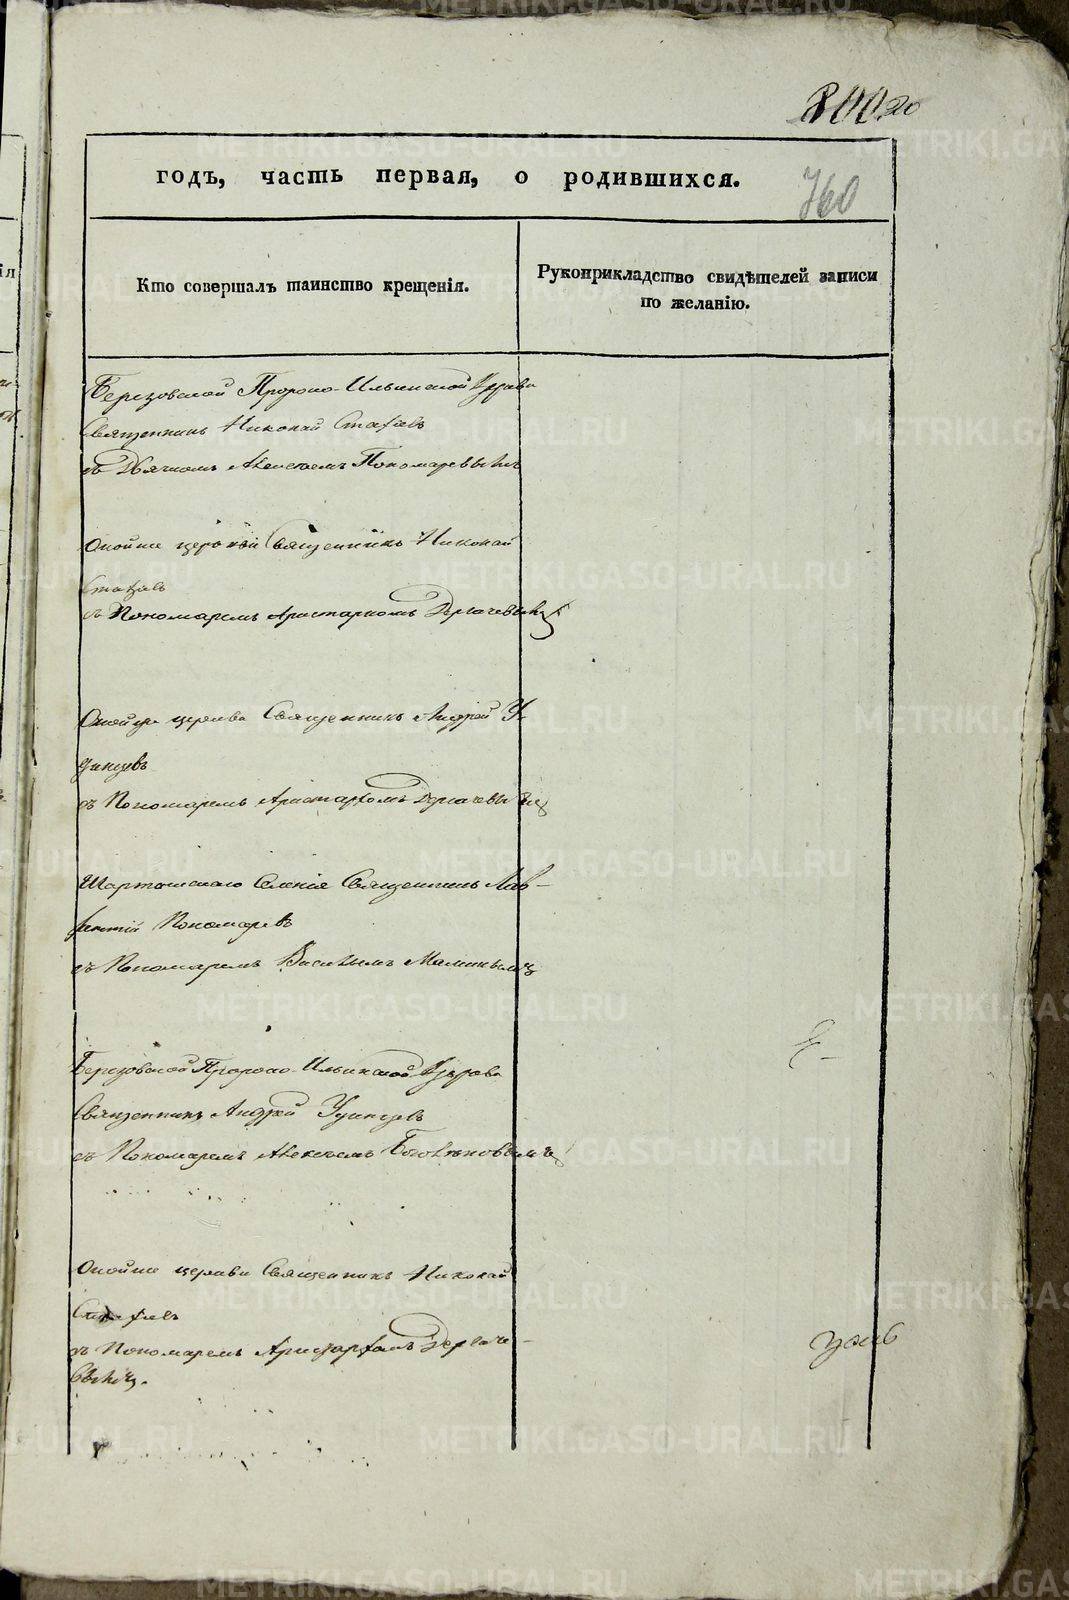 760
годъ, часть первая, о родившихся.
Кто совершалъ таинство крещенія.
Рукоприкладство свидѣтелей записи
по желанію.
Березовской Пророко-Ильинской Церкви
Священникъ Николай Стафіевъ
съ Дьячкомъ Алексѣемъ Пономаревымъ
Оной же церкви Священникъ Николай
съ Пономаремъ Аристархомъ Дергачевымъ
Оной же церкви Священникъ Андрей У-
динцовъ
съ Пономаремъ Аристархомъ Дергачевымъ
Шарташскаго Селенія Священникъ Лав-
рентій Пономаревъ
съ Пономаремъ Василіемъ Малининымъ
Березовской Пророко-Ильинской Церкви
Священникъ Андрей Удинцовъ
съ Пономаремъ Алексѣемъ
Оной же церкви Священникъ Николай
съ Пономаремъ Аристархомъ Дергаче-
вымъ.
METRIKI.GASO-URAL.RU